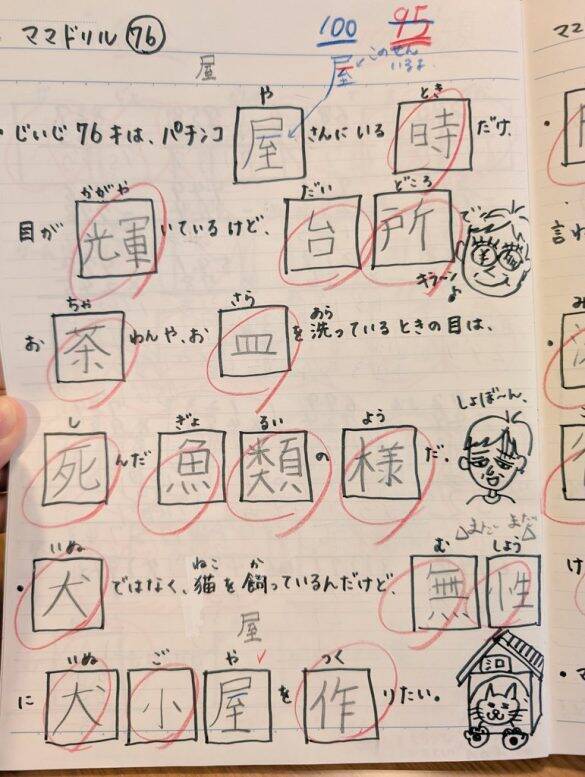 ママドリル 76
100 95
屋 屋 このせん いるよ
や とき
・じいじ76才は、パチンコ屋さんにいる時だけ、
かがや だい どころ
目が輝いているけど、台所で、
キラーン
ちゃ さら あら
お茶わんや、お皿を洗っているときの目は、
しょぼ〜ん、
し ぎょ るい よう
死んだ魚類の様だ。
まだ まだ
いぬ ねこ か む しょう
・犬ではなく、猫を飼っているんだけど、無性
屋
いぬ ご や つく
に犬小屋を作りたい。
言わ
み
け